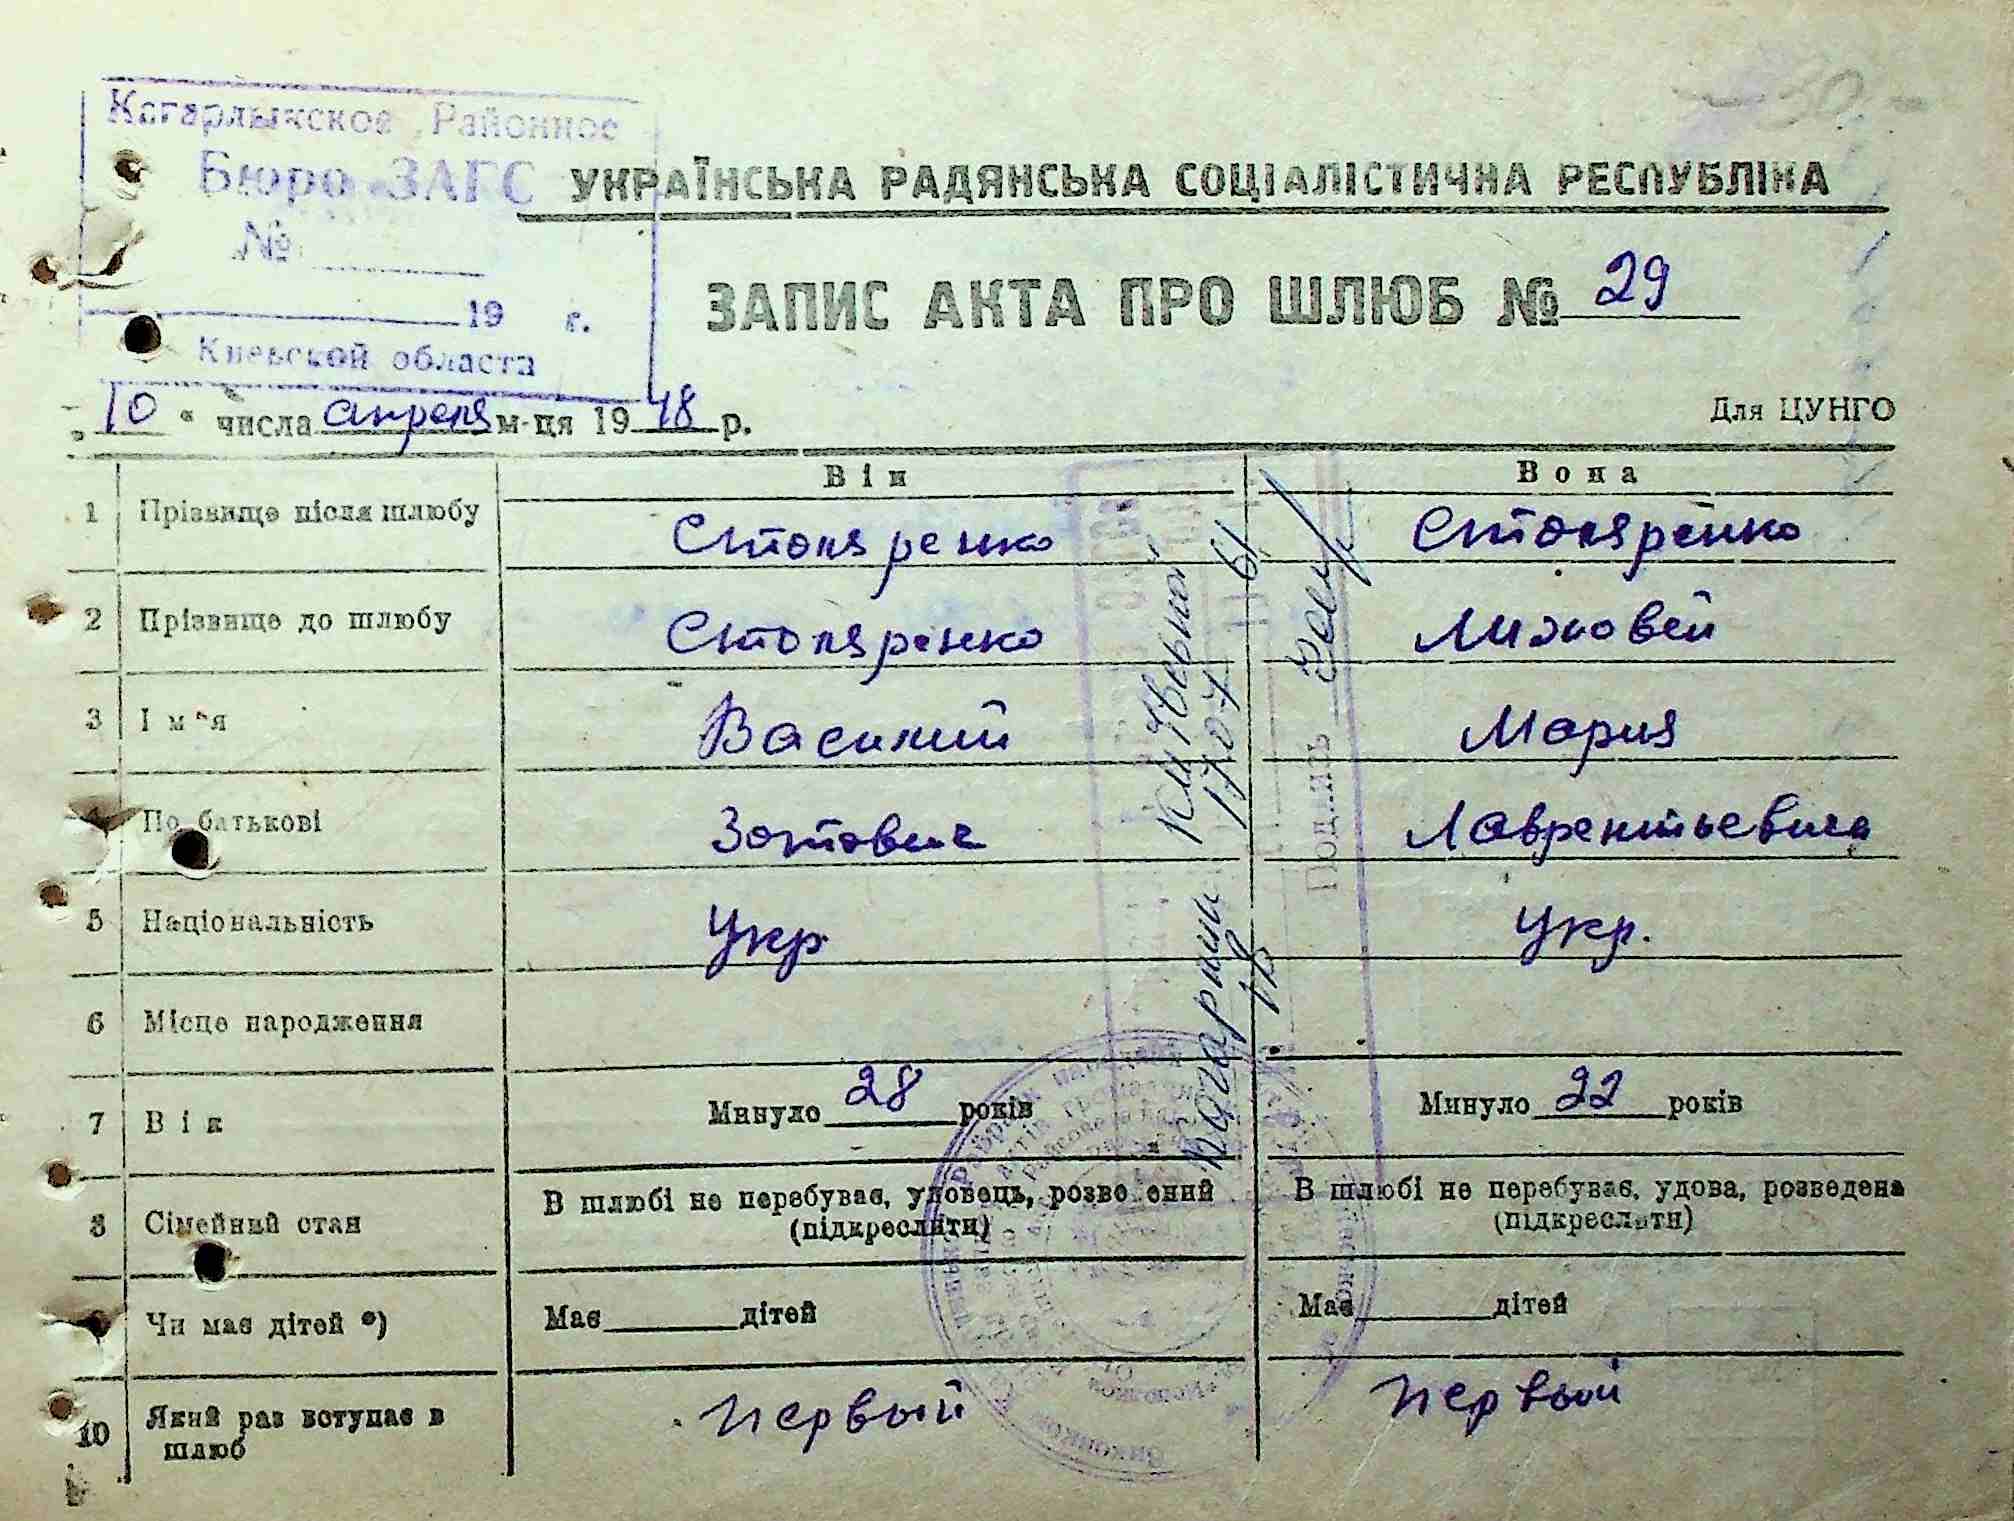 Кагарлыкское Районное
Бюро ЗАГС
№
19 г.
Киевской области
УКРАЇНСЬКА РАДЯНСЬКА СОЦІАЛІСТИЧНА РЕСПУБЛІКА
ЗАПИС АКТА ПРО ШЛЮБ № 29
„10“ числа апреля м-ця 1948 р.
Для ЦУНГО
Він Вона
1 Прізвище після шлюбу Столяренко Столяренко
2 Прізвище до шлюбу Столяренко Лизовей
3 Ім'я Василий Мария
4 По батькові Зотович Лаврентьевна
5 Національність Укр Укр.
6 Місце народження
7 Вік Минуло 28 років Минуло 22 років
8 Сімейный стан В шлюбі не перебуває, удовець, розведений (підкреслити) В шлюбі не перебуває, удова, розведена (підкреслити)
9 Чи має дітей *) Має дітей Має дітей
10 Який раз вступає в шлюб первый первый
Подпись